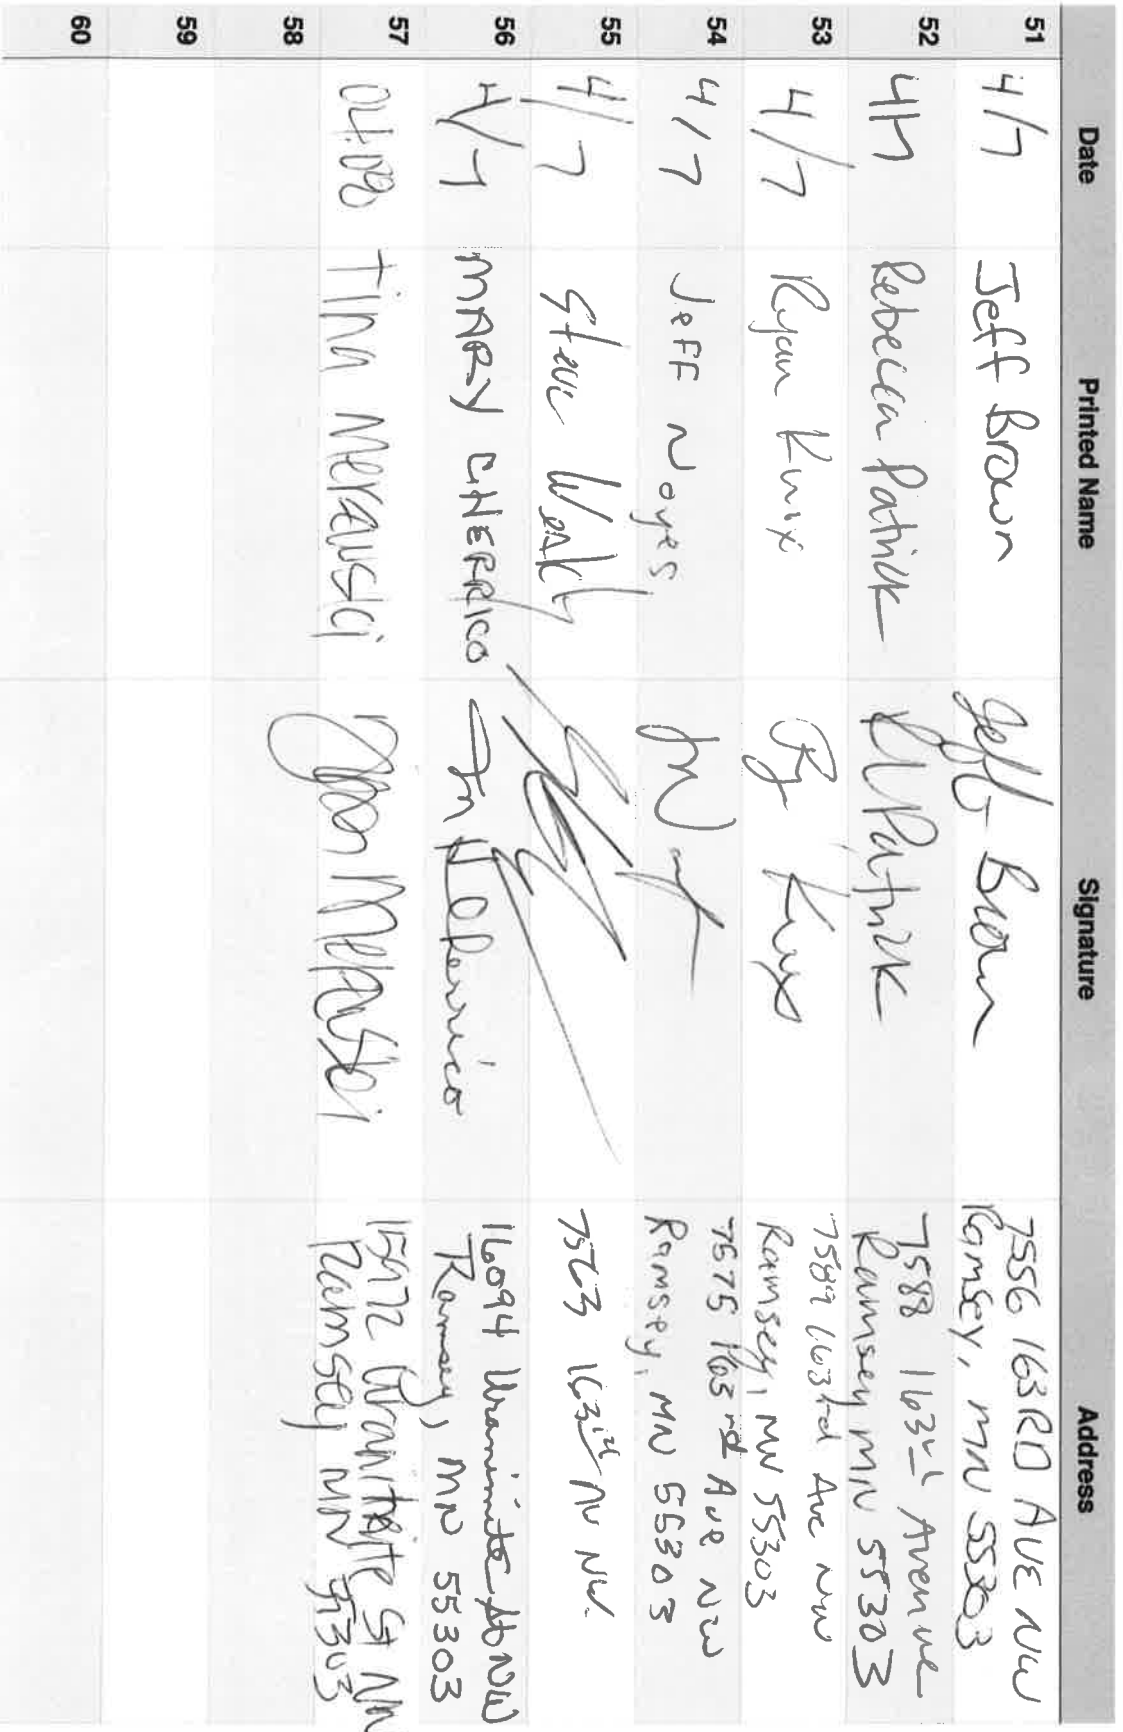 Date Printed Name Signature Address
51 4/7 Jeff Brown Jeff Brown 7556 163RD AVE NW
Ramsey, MN 55303
52 4/7 Rebecca Patrick Patrick 7588 163rd Avenue
Ramsey MN 55303
53 4/7 Ryan Knix 7589 163rd Ave NW
Ramsey, MN 55303
54 4/7 Jeff Noyes 7575 163rd Ave NW
Ramsey, MN 55303
55 4/7 Steve 7563 163rd NW.
56 4/7 MARY CHERRICO M Cherrico 16094 St NW
Ramsey, MN 55303
57 04.08 Tina 15972 St NW
Ramsey MN 55303
58
59
60